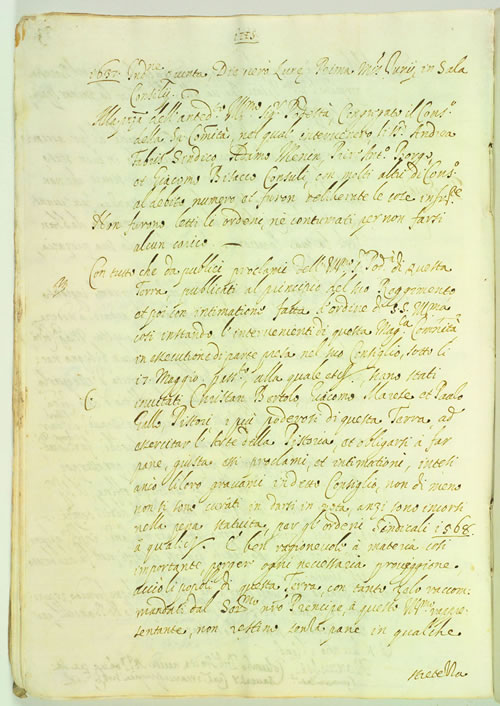 1637 Ind.ne quinta Die vero Lune Prima Mis Junij in Sala
Consilij
Alla pnza dell'anted.
della Sp. Comità, nel qual intervenero li Andrea
Sindico, Adamo
et Giacomo Consuli, con molti altri di Cons.
al debito numero et furon deliberate le cose infratte
Non furono letti le ordene, nè contumati per non farsi
alcun carico.
Con tutto che da publici proclami dell' Ill.mo di questa
Terra publicati al principio del suo Regimento
et poi con intimatione fatta d'ordine di S.S. Ill.ma
così instando l'intervenienti di questa Mag.ca Comunità
in essecutione di parte presa nel suo Consiglio, sotto li
17 Maggio alla quale etc. siano stati
invitati Christian Bortolo Giacomo et Paolo
Gallo Pistori i più poderosi di questa Terra, ad
esercitar l'arte della Pistoria, et obligarsi à far
pane, giusta essi proclami, et intimationi, intesi
anco li loro gravami in detto Consiglio, non di meno
non si sono curati in darsi in nota, anzi sono incorsi
nella pena statuita, per gl'ordeni Sindicali 1568
à quali etc. È ben ragionevole à materia così
importante porger ogni necessaria provigione
acciò li popoli di questa Terra con tanto zelo raccom:
mandati dal Ser.mo n'ro Prencipe, à questo Ill.mo rappre
sentante, non restino senza pane in qualche